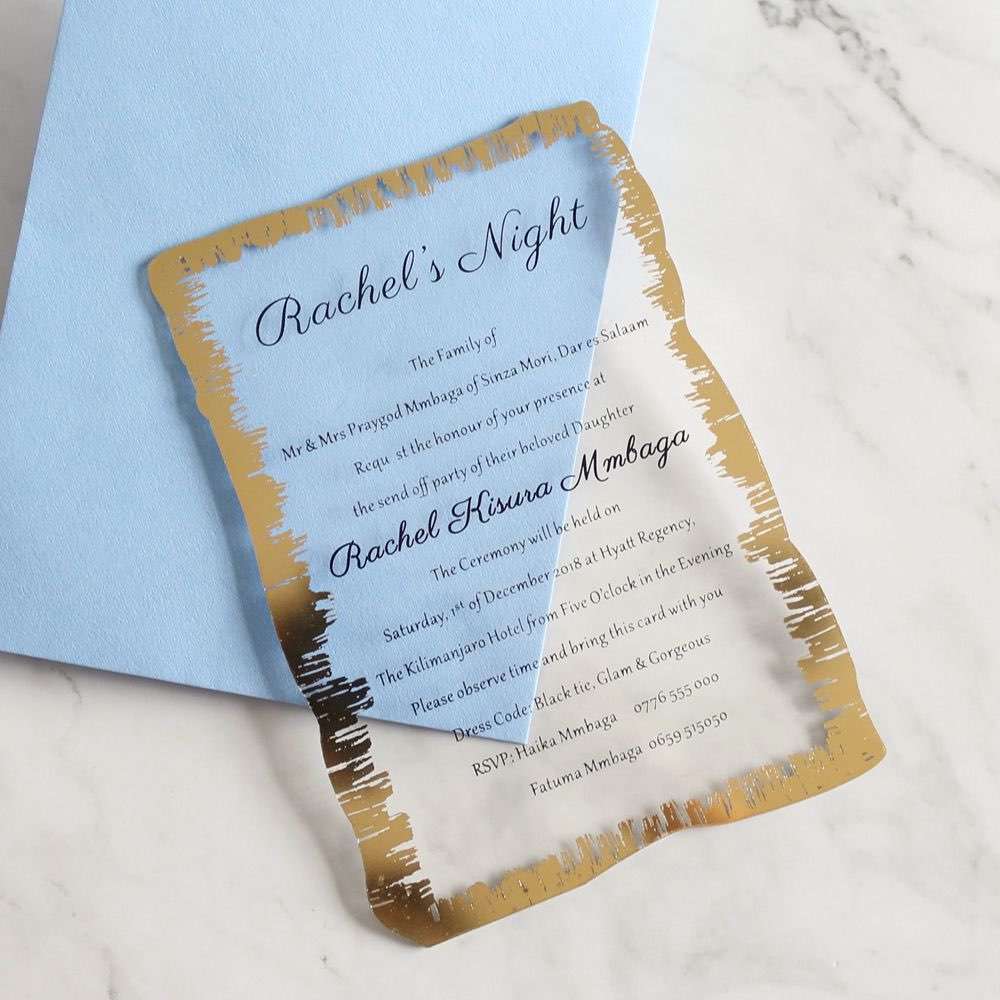 Rachel's Night
The Family of
Mr & Mrs Praygod Mmbaga of Sinza Mori, Dar es Salaam
Requ st the honour of your presence at
the send off party of their beloved Daughter
Rachel Kisura Mmbaga
The Ceremony will be held on
Saturday, 1st of December 2018 at Hyatt Regency,
The Kilimanjaro Hotel from Five O'clock in the Evening
Please observe time and bring this card with you
Dress Code: Black tie, Glam & Gorgeous
RSVP: Haika Mmbaga 0776 555 000
Fatuma Mmbaga 0659 515050